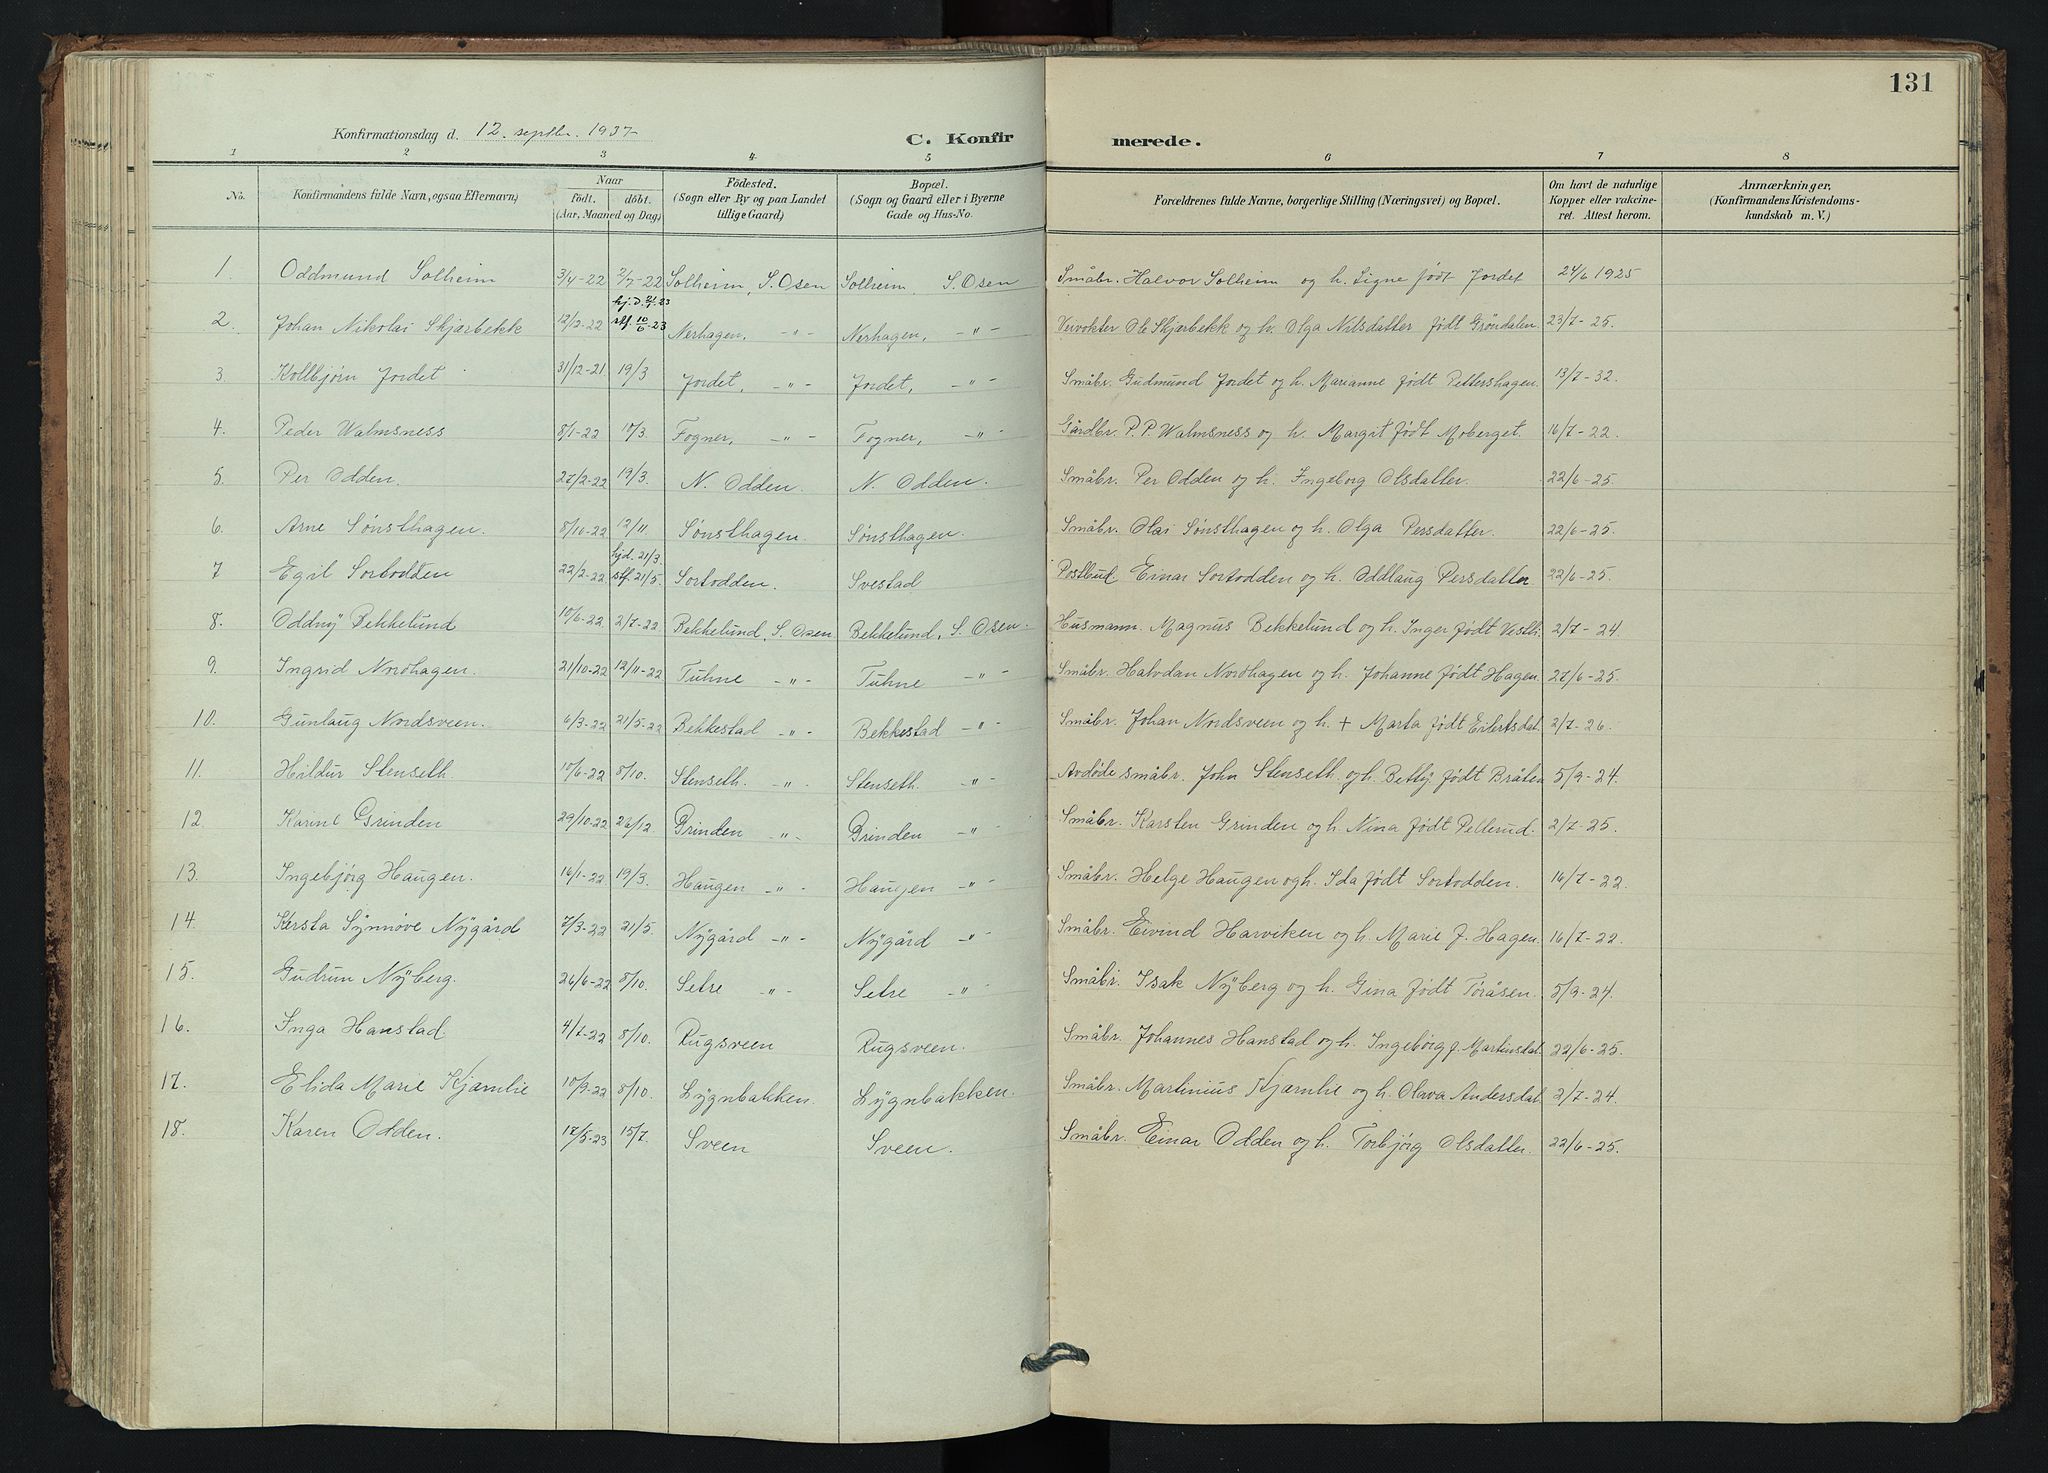 131
Konfirmationsdag d. 12. septbr. 1937
C. Konfirmerede.
1 2 3 4 5 6 7 8
No. Konfirmandens fulde Navn, ogsaa Efternavn) Naar födt. döbt. (Aar, Maaned og Dag) Födested. (Sogn eller By og paa Landet tillige Gaard) Bopæl. (Sogn og Gaard eller i Byerne Gade og Hus-No. Forældrenes fulde Navne, borgerlige Stilling (Næringsvei) og Bopæl. Om havt de naturlige Kopper eller vakcineret. Attest herom. Anmærkninger, (Konfirmandens Kristendomskundskab m. V.)
1. Oddmund Solheim 3/4-22 2/7-22 Solheim, S. Osen Solheim, S. Osen Småbr. Halvor Solheim og h. Signe født Jordet 24/6 1925
2. Johan Nikolai Skjærbekk 12/2-22 hj.d. 21/1.23 stf. 10/6-23 Nerhagen, -"- Nerhagen, -"- Veivokter Ole Skjærbekk og h. Olga Nilsdatter født Grøndalen 23/7-25.
3. Kollbjørn Jordet 31/12-21 19/3 Jordet, -"- Jordet, -"- Småbr. Gudmund Jordet og h. Marianne født Pettershagen. 13/7-32.
4. Peder Walmsness 8/1-22 17/3. Fogner, -"- Fogner, -"- Gårdbr. P. P. Walmsness og h. Margit født Moberget. 16/7-22.
5. Per Odden. 27/2-22 19/3. N. Odden. N. Odden. Småbr. Per Odden og h. Ingeborg Olsdatter. 22/6-25.
6. Arne Sønsthagen. 8/10-22 12/11. Sønsthagen. Sønsthagen. Småbr. Olai Sønsthagen og h. Olga Persdatter. 22/6-25.
7 Egil Sortodden 22/2-22 hjd. 21/3. stf. 21/5. Sortodden. Svestad Postbud. Einar Sortodden og h. Oddlaug Persdatter 22/6-25.
8. Oddny Bekkelund 10/6-22 2/7-22 Bekkelund, S. Osen Bekkelund, S. Osen. Husmann. Magnus Bekkelund og h. Inger født Vestli. 2/7-24.
9. Ingrid Nordhagen. 21/10-22 12/11-22 Tuhne -"- Tuhne -"- Småbr. Halvdan Nordhagen og h. Johanne født Hagen. 27/6-25.
10. Gunlaug Nordsveen. 6/3-22 21/5-22 Bekkestad -"- Bekkestad -"- Småbr. Johan Nordsveen og h. + Marta født Eilertsdat. 2/7-26.
11. Hildur Stenseth. 10/6-22 8/10. Stenseth. -"- Stenseth. -"- Avdøde småbr. John Stenseth. og h. Betty født Bråten 5/9-24.
12. Karine Grinden 29/10-22 26/12 Grinden -"- Grinden -"- Småbr. Karsten Grinden og h. Nina født Pellerud. 2/7-25.
13. Ingebjørg Haugen. 16/1-22 19/3. Haugen -"- Haugen -"- Småbr. Helge Haugen og h. Ida født Sortodden. 16/7-22.
14 Kersta Synnøve Nygård 7/3-22 21/5. Nygård -"- Nygård -"- Småbr. Eivind Harviken og h. Marie f. Hagen. 16/7-22.
15. Gudrun Nyberg. 26/6-22 8/10. Setre -"- Setre -"- Småbr. Isak Nyberg og h. Gina født Tøråsen. 5/9-24.
16. Inga Hanstad. 4/7-22 8/10. Rugsveen Rugsveen. Småbr. Johannes Hanstad og h. Ingebørg f. Martinsdat. 22/6-25.
17. Elida Marie Kjærnlie 10/9-22 8/10. Lygnbakken. Lygnbakken. Småbr. Martinius Kjærnlie og h. Olava Andersdat. 2/7-24.
18. Karen Odden. 17/5-23 15/7. Sveen Sveen. Småbr. Einar Odden og h. Torbjørg Olsdatter. 22/6-25.